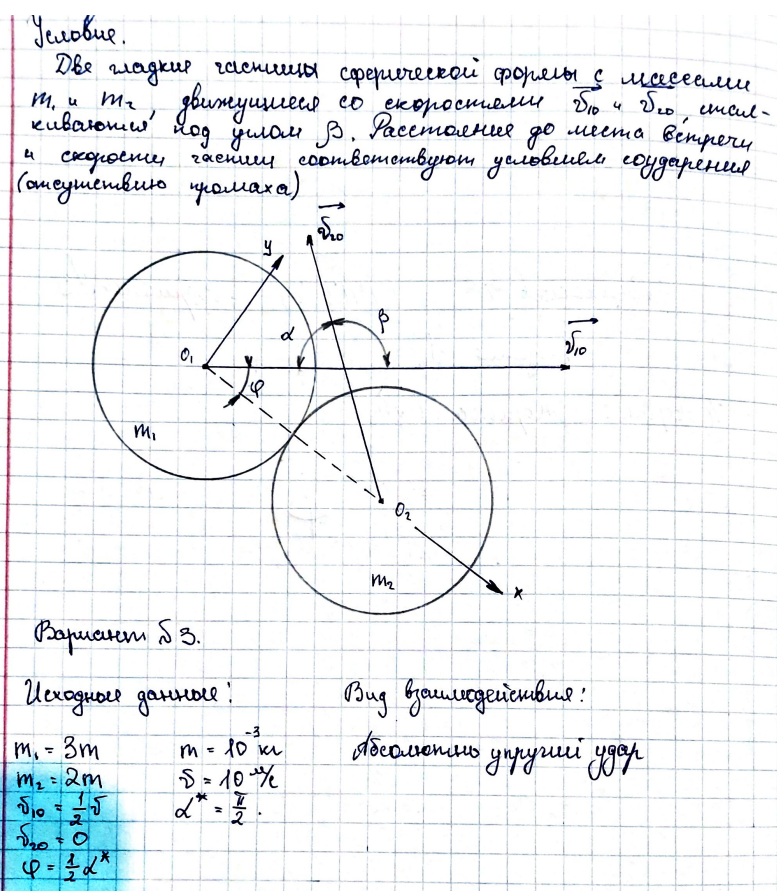 Условие.
Две гладкие частицы сферической формы с массами
m₁ и m₂, движущиеся со скоростями v₁₀ и v₂₀, стал-
киваются под углом β. Расстояние до места встречи
и скорости частиц соответствуют условиям соударения
(отсутствию промаха)
v₂₀
y
α
β
O₁
v₁₀
φ
m₁
O₂
m₂
x
Вариант №3.
Исходные данные: Вид взаимодействия:
m₁ = 3m m = 10⁻³ кг Абсолютно упругий удар
m₂ = 2m v = 10 м/с
v₁₀ = 1/2 v α* = π/2.
v₂₀ = 0
φ = 1/2 α*